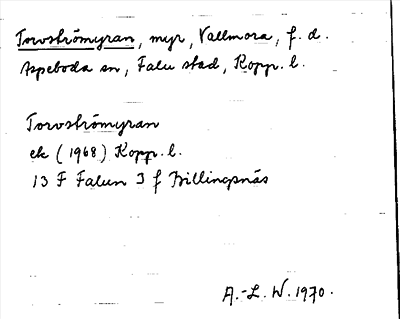 Torvströmyran, myr, Vallmora, f. d.
Aspeboda sn, Falu stad, Kopp. l.
Torvströmyran
ek (1968) Kopp. l.
13 F Falun I f Billingsnäs
A.-L. W. 1970.